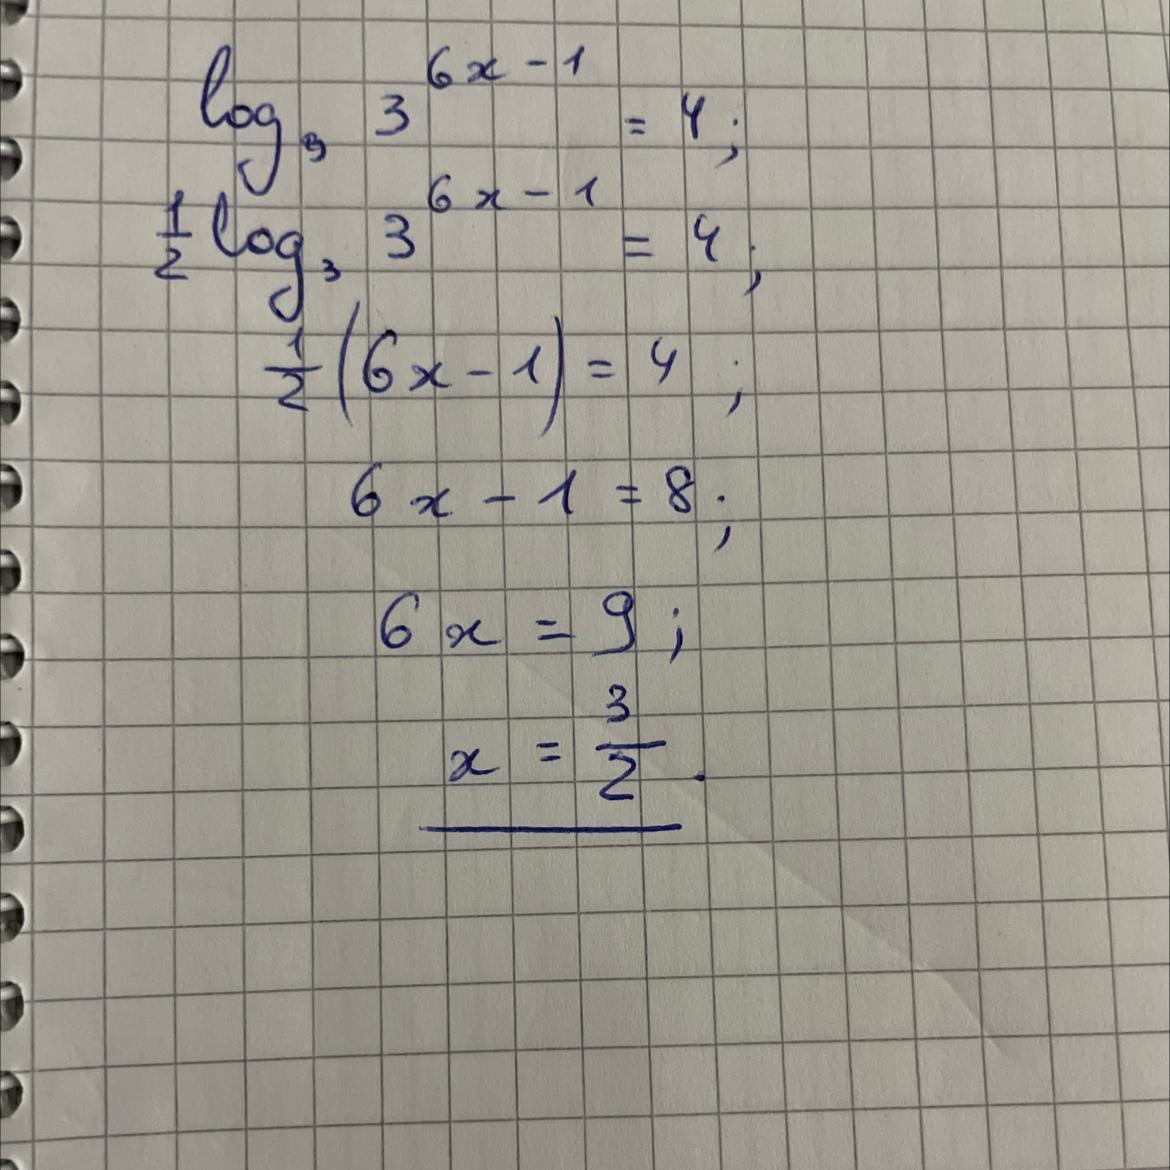 log₉ 3^(6x - 1) = 4;
1/2 log₃ 3^(6x - 1) = 4;
1/2 (6x - 1) = 4;
6x - 1 = 8;
6x = 9;
x = 3/2.